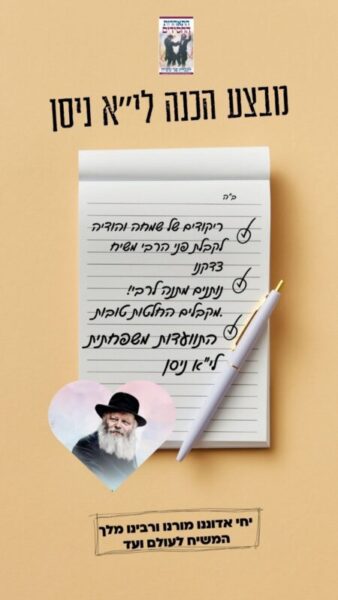 התאחדות
החסידים
מבצע הכנה לי״א ניסן
ב"ה
ריקודים של שמחה והודיה
לקבלת פני הרבי משיח
צדקנו
נותנים מתנה לרבי!
מקבלים החלטות טובות.
התוועדות משפחתית
לי"א ניסן
יחי אדוננו מורנו ורבינו מלך
המשיח לעולם ועד